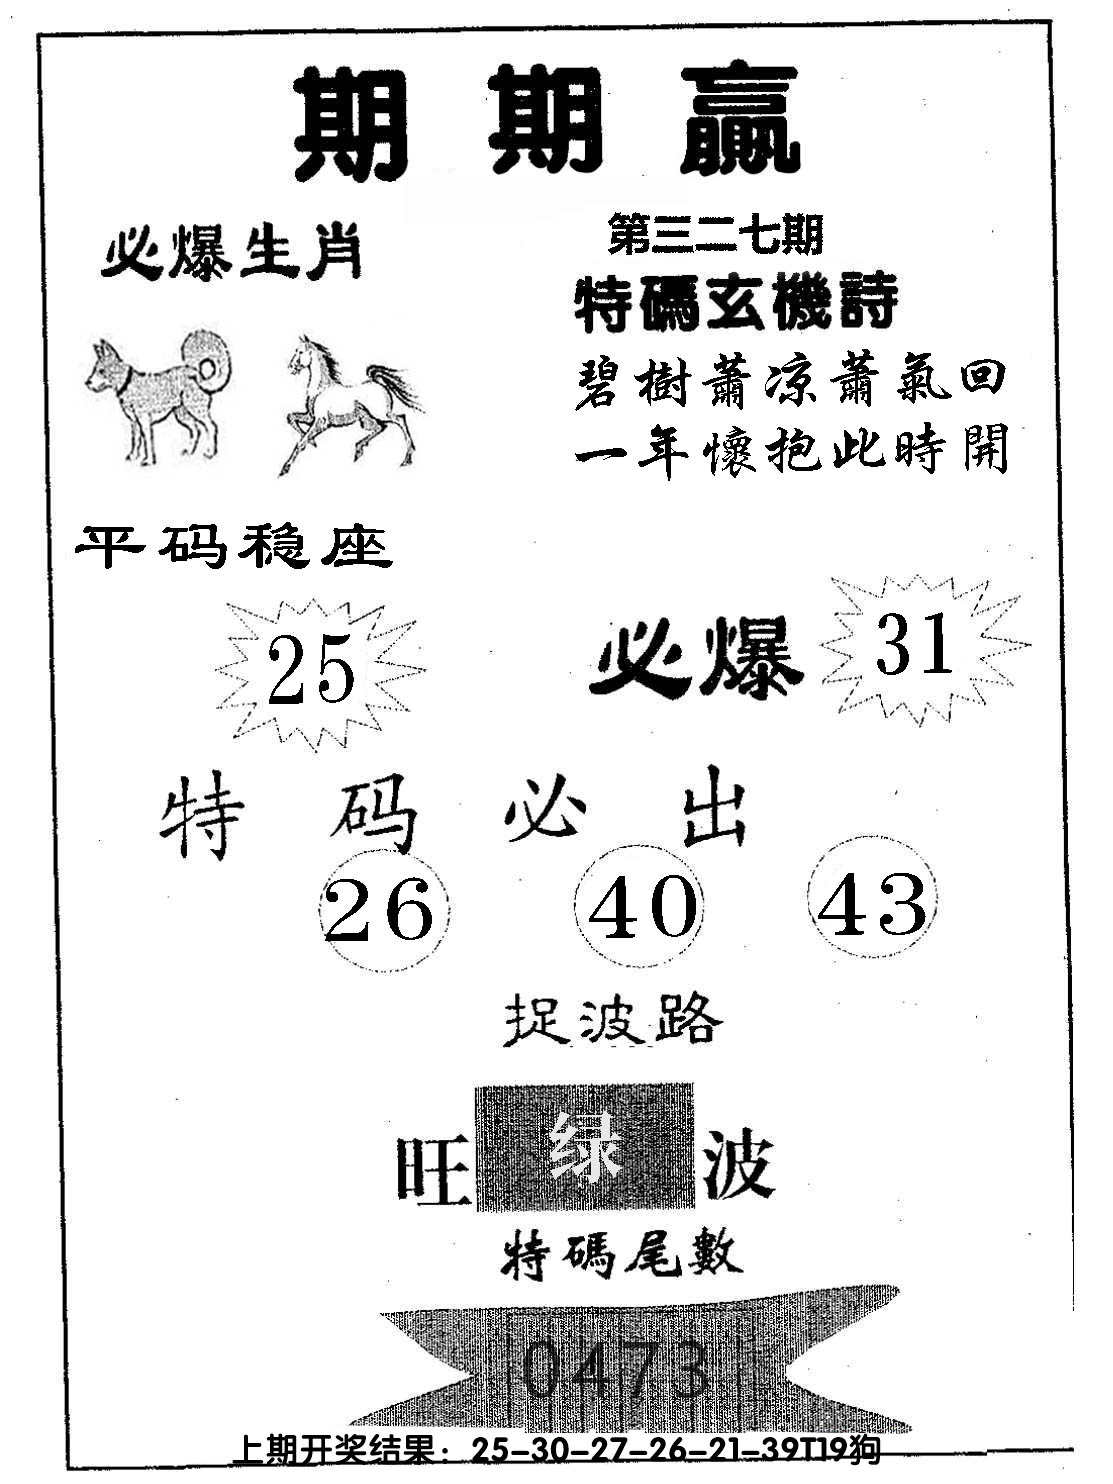 期期赢
必爆生肖
第三二七期
特碼玄機詩
碧樹蕭凉蕭氣回
一年懷抱此時開
平码稳座
25
必爆
31
特码必出
26 40 43
捉波路
旺绿波
特碼尾數
0473
上期开奖结果：25-30-27-26-21-39T19狗